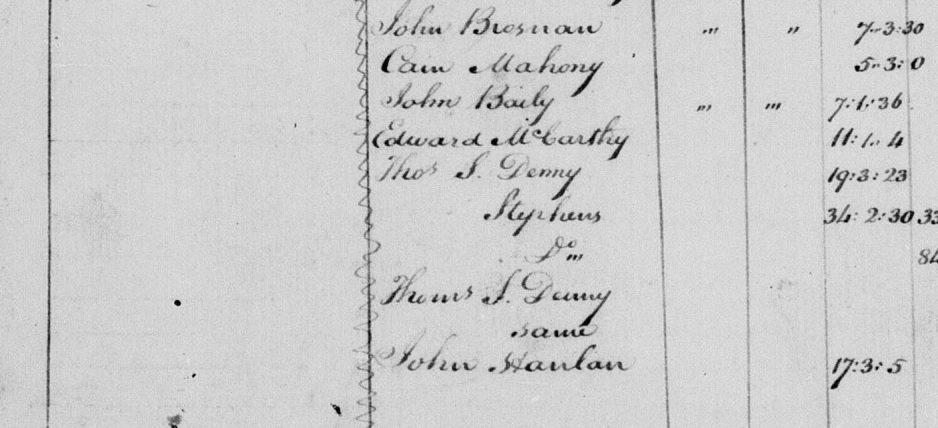 John Bresnan „ „ 7:3:30
Cain Mahony 5:3:0
John Baily „ „ 7:1:36
Edward McCarthy 11:1:4
Thos S. Denny 19:3:23
Stephens 34:2:30 33
Do 84
Thoms S. Denny
same
John Hanlan 17:3:5